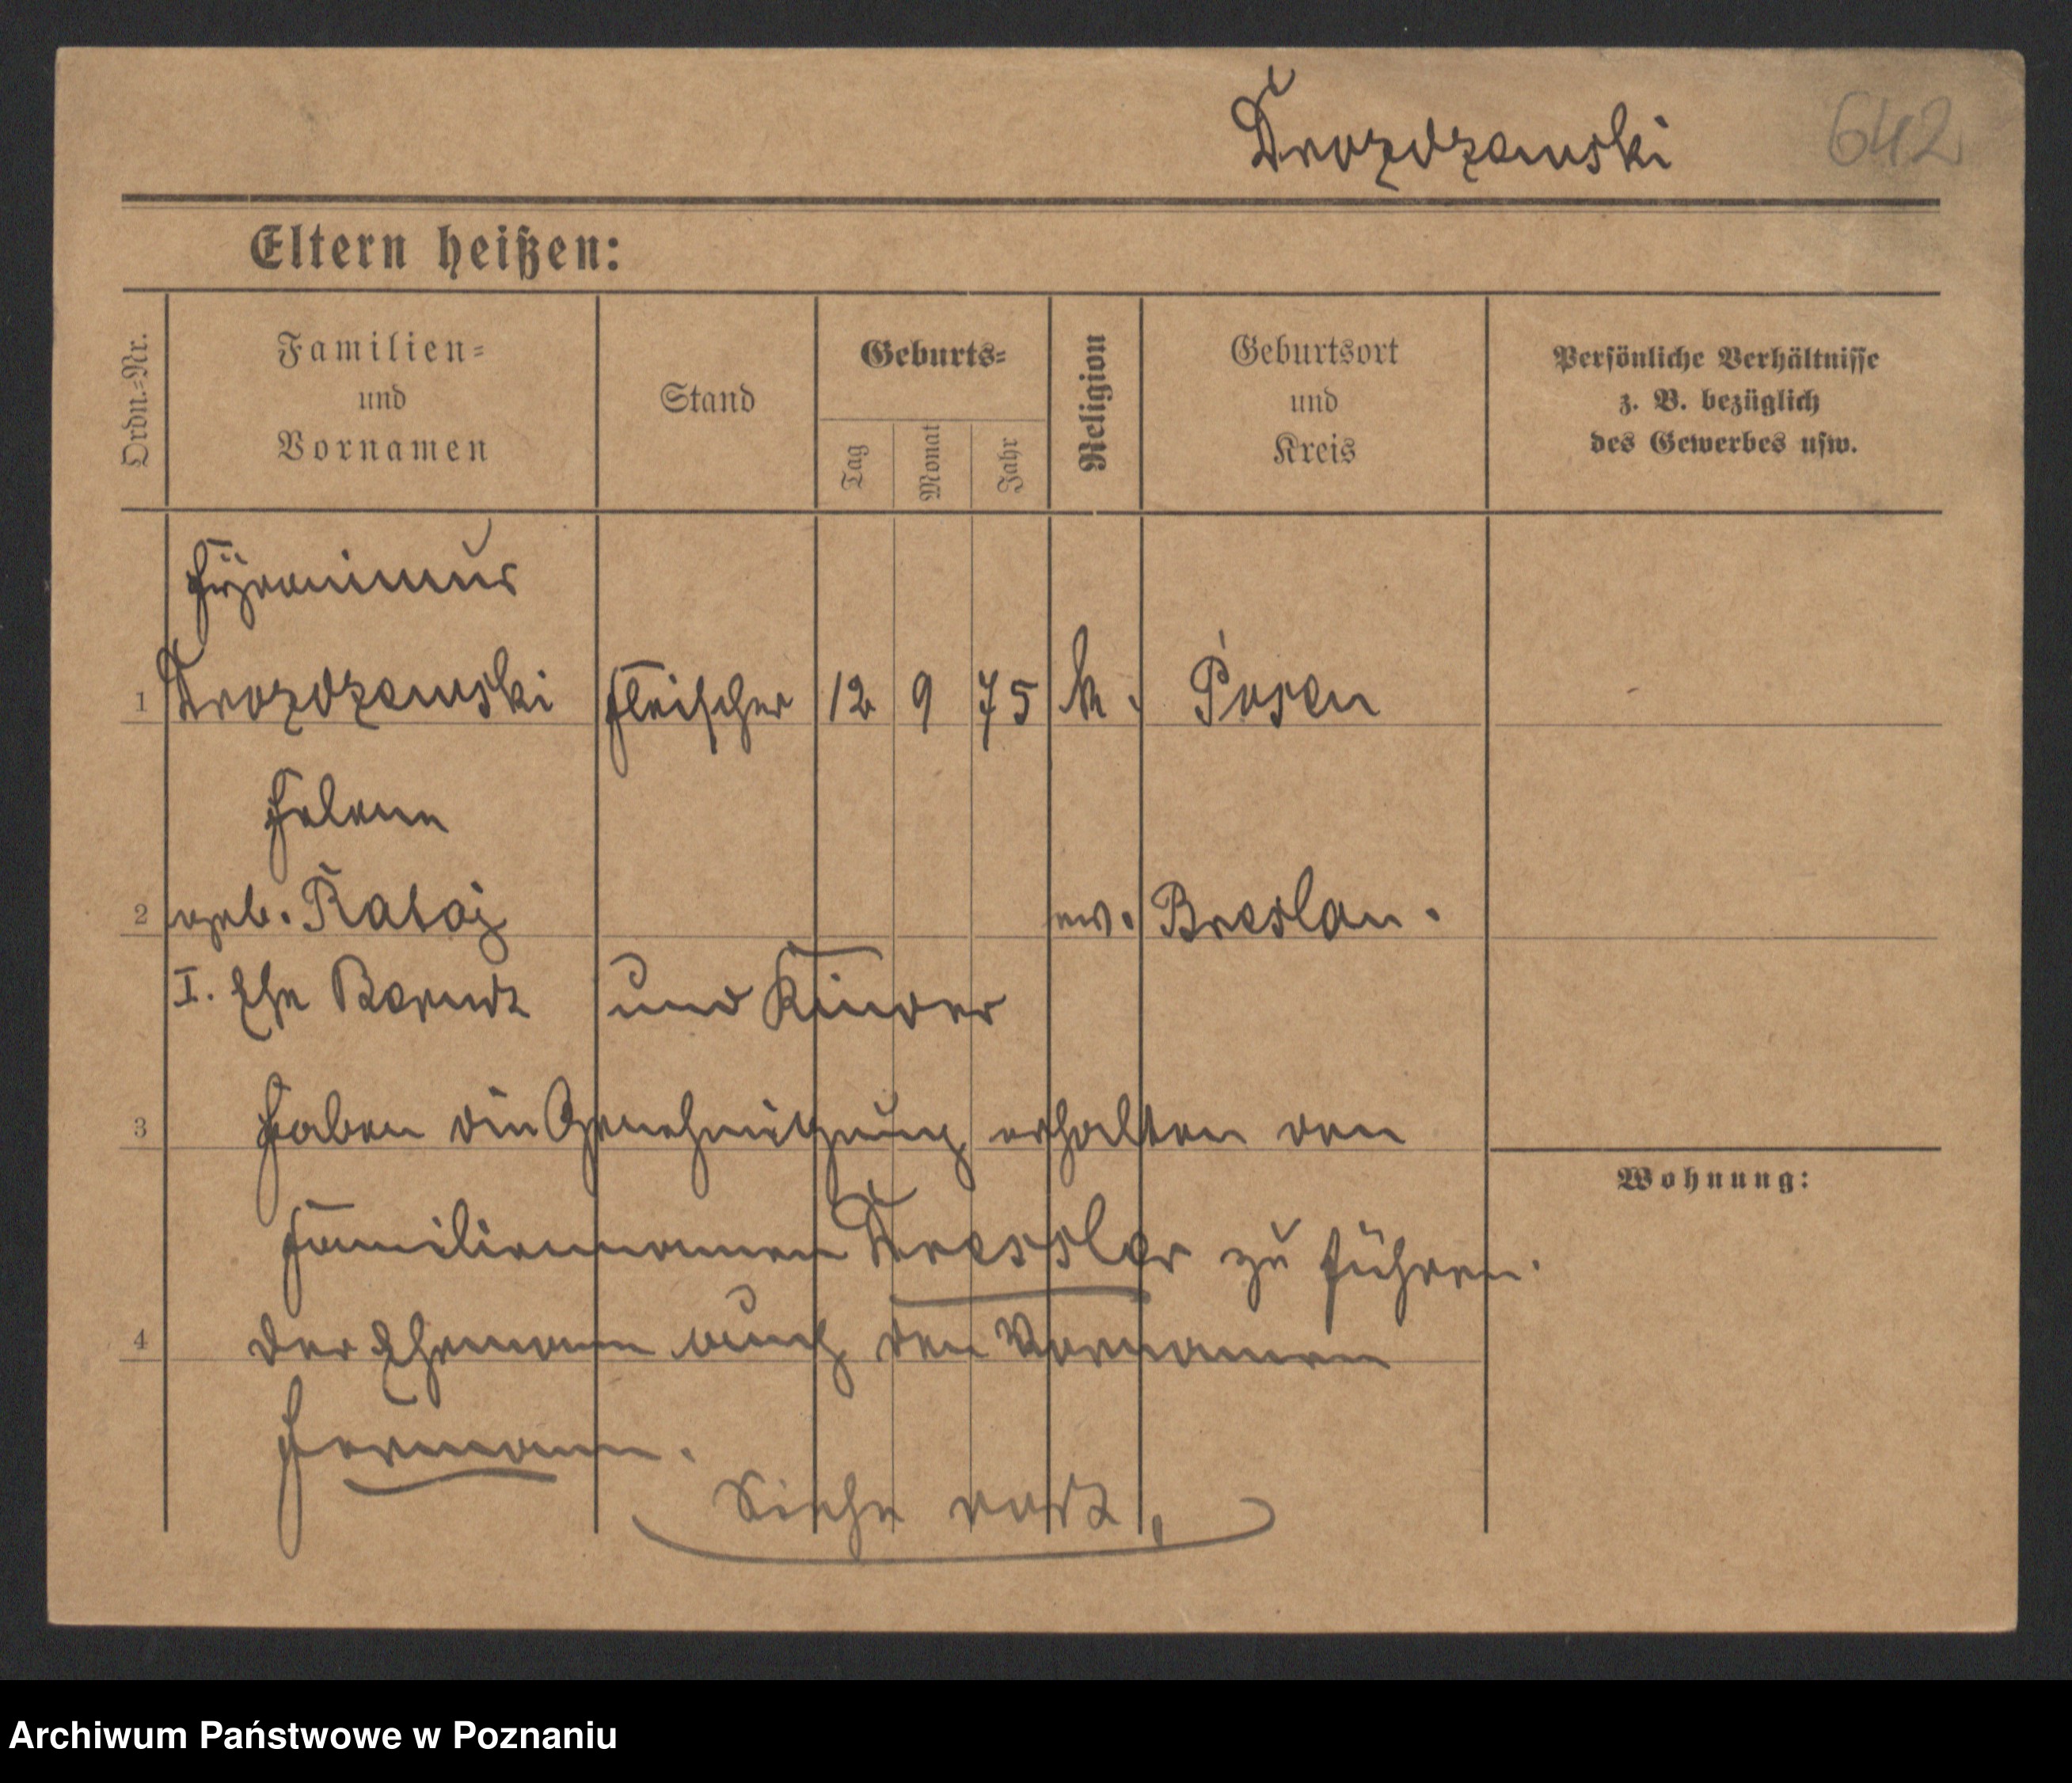 Drozdzewski 642
Eltern heißen:
Ordn.=Nr.
Familien=
und
Vornamen
Stand
Geburts=
Tag
Monat
Jahr
Religion
Geburtsort
und
Kreis
Persönliche Verhältnisse
z. B. bezüglich
des Gewerbes usw.
Hÿronimus
1 Drozdzewski Fleischer 12 9 75 k. Posen
Helene
2 geb. Rataj ev. Breslau.
I. Ehe und Kinder
3 haben die Genehmigung erhalten den
Wohnung:
Familiennamen Dressler zu führen.
4 der Ehemann auch den Vornamen
Hermann.
Siehe dort.
Archiwum Państwowe w Poznaniu